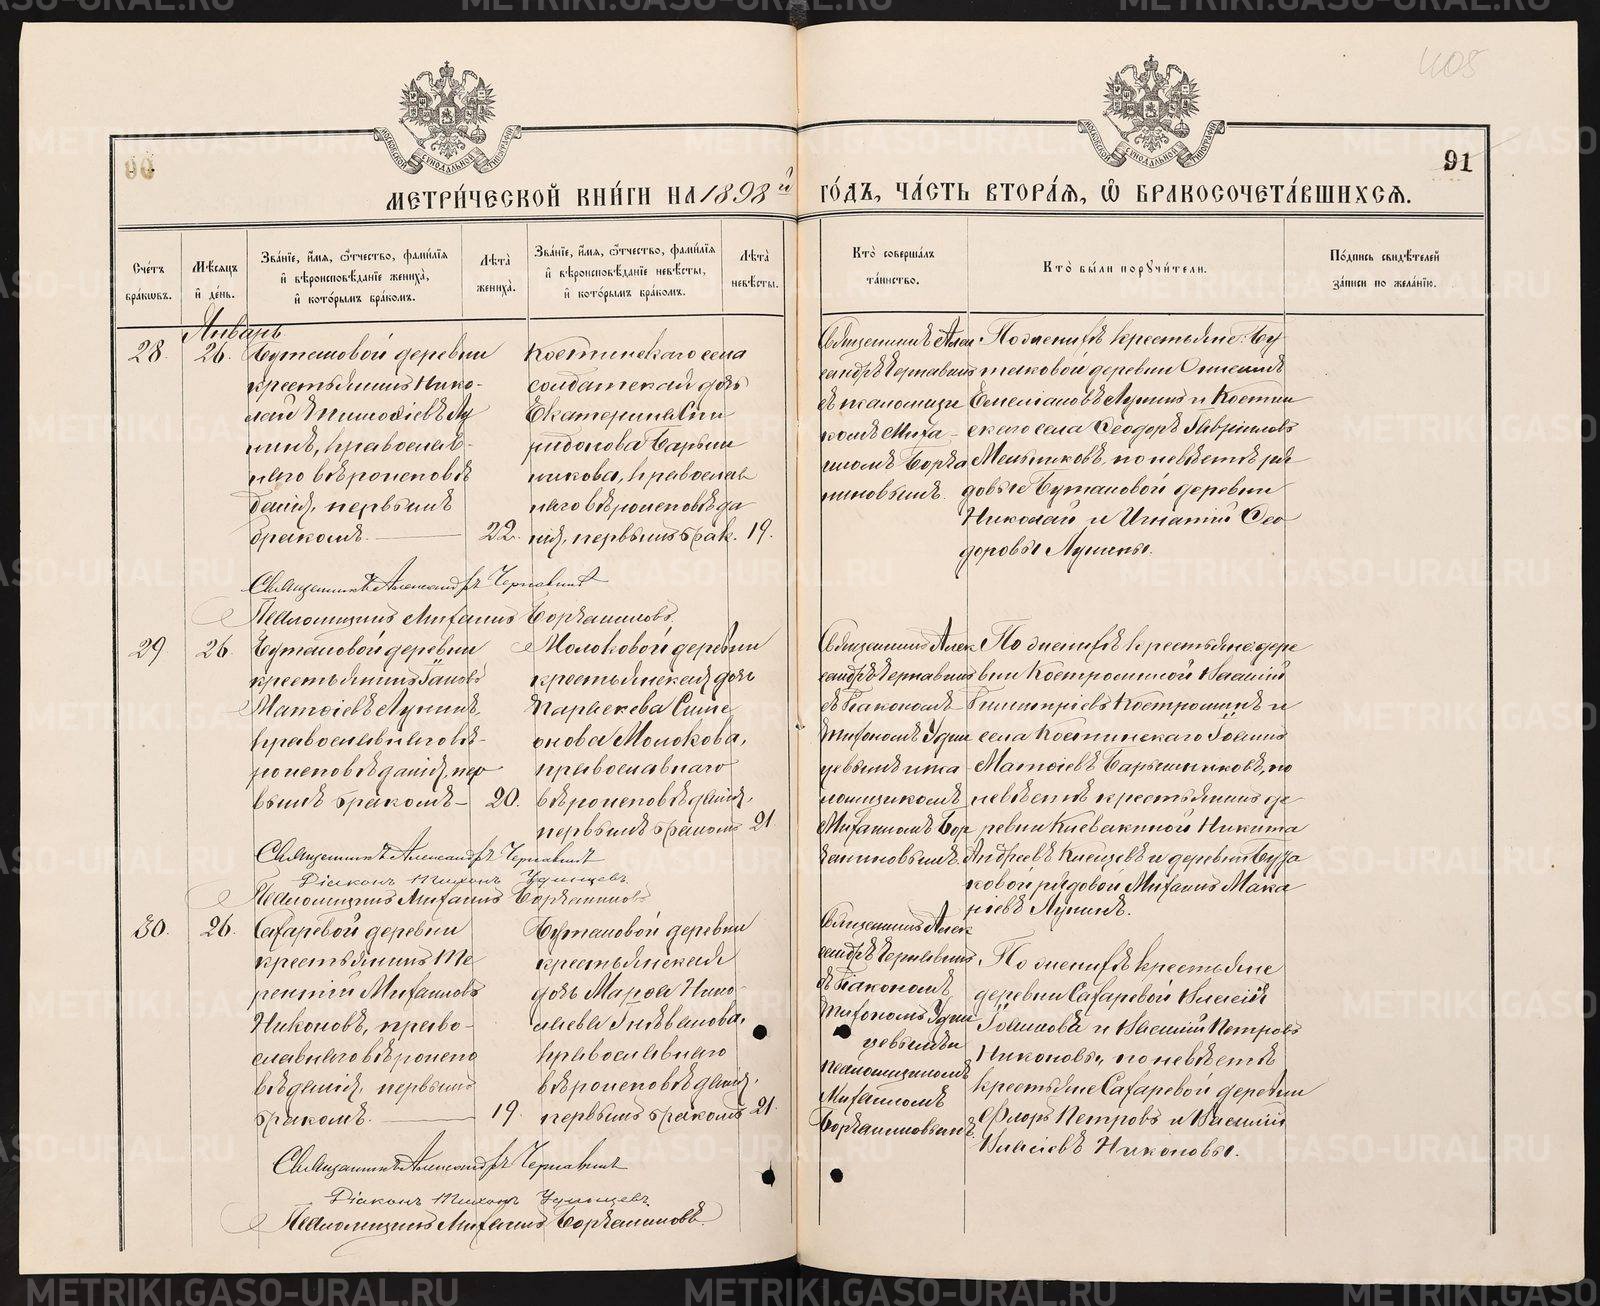 405
90
91
МЕТРИЧЕСКОЙ КНИГИ НА 1898й ГОДЪ, ЧАСТЬ ВТОРАЯ, Ѿ БРАКОСОЧЕТАВШИХСЯ.
Счетъ браковъ.
Мѣсяцъ и день.
Званіе, имя, отчество, фамилія
и вѣроисповѣданіе жениха,
и которымъ бракомъ.
Лѣта
жениха.
Званіе, имя, отчество, фамилія
и вѣроисповѣданіе невѣсты,
и которымъ бракомъ.
Лѣта
невѣсты.
Кто совершалъ
таинство.
Кто были поручители.
Подпись свидѣтелей
записи по желанію.
Январь
28. 26.
крестьянинъ Нико-
лай
православ-
наго вѣроисповѣ
данія, первымъ
бракомъ. 22.
Костинскаго села
солдатская дочь
Екатерина Спи
ридонова Барыш
никова, православ
наго вѣроисповѣда
нія, первымъ брак. 19.
Священникъ Алек
сандръ Чернавинъ
съ псаломщи
комъ Миха-
иломъ
По женихѣ крестьяне: Бу-
Емельяновъ Лунинъ и Костин
скаго села Ѳеодоръ Гавріиловъ
Мельниковъ, по невѣстѣ ря
довые деревни
Николай и Игнатій Ѳео
доровы Лунины.
Священникъ Александръ Чернавинъ
Псаломщикъ Михаилъ
29 26.
деревни
крестьянинъ
Лунинъ,
православнаго вѣ-
роисповѣданія, пер
вымъ бракомъ - 20.
Молоковой деревни
крестьянская дочь
Параскева Симе
онова Молокова,
православнаго
вѣроисповѣданія,
первымъ бракомъ 21.
Священникъ Алек
сандръ Чернавинъ
съ діакономъ
Тихономъ Удин
цевымъ и пса
ломщикомъ
Михаиломъ
По женихѣ крестьяне: дере
вни Костроминой Василій
Димитріевъ Костроминъ и
села Костинскаго Іоаннъ
Барышниковъ, по
невѣстѣ крестьянинъ де
ревни Никита
Андреевъ и деревни
рядовой Михаилъ Мака
ріевъ Лунинъ.
Священникъ Александръ Чернавинъ
Діаконъ Тихонъ Удинцевъ
Псаломщикъ Михаилъ
30. 26.
Сахаревой деревни
крестьянинъ Те
рентій Михаиловъ
Никоновъ, право-
славнаго вѣроиспо
вѣданія, первымъ
бракомъ. 19.
деревни
крестьянская
дочь Марѳа Нико
лаева
православнаго
вѣроисповѣданія,
первымъ бракомъ 21.
Священникъ Алек
сандръ Чернавинъ
съ діакономъ
Тихономъ Удин
цевымъ и
псаломщикомъ
Михаиломъ
По женихѣ крестьяне
деревни Сахаревой Алексій
и Василій Петровъ
Никоновы, по невѣстѣ
крестьяне Сахаревой деревни
Флоръ Петровъ и Василій
Никоновы.
Священникъ Александръ Чернавинъ
Діаконъ Тихонъ Удинцевъ
Псаломщикъ Михаилъ
METRIKI.GASO-URAL.RU